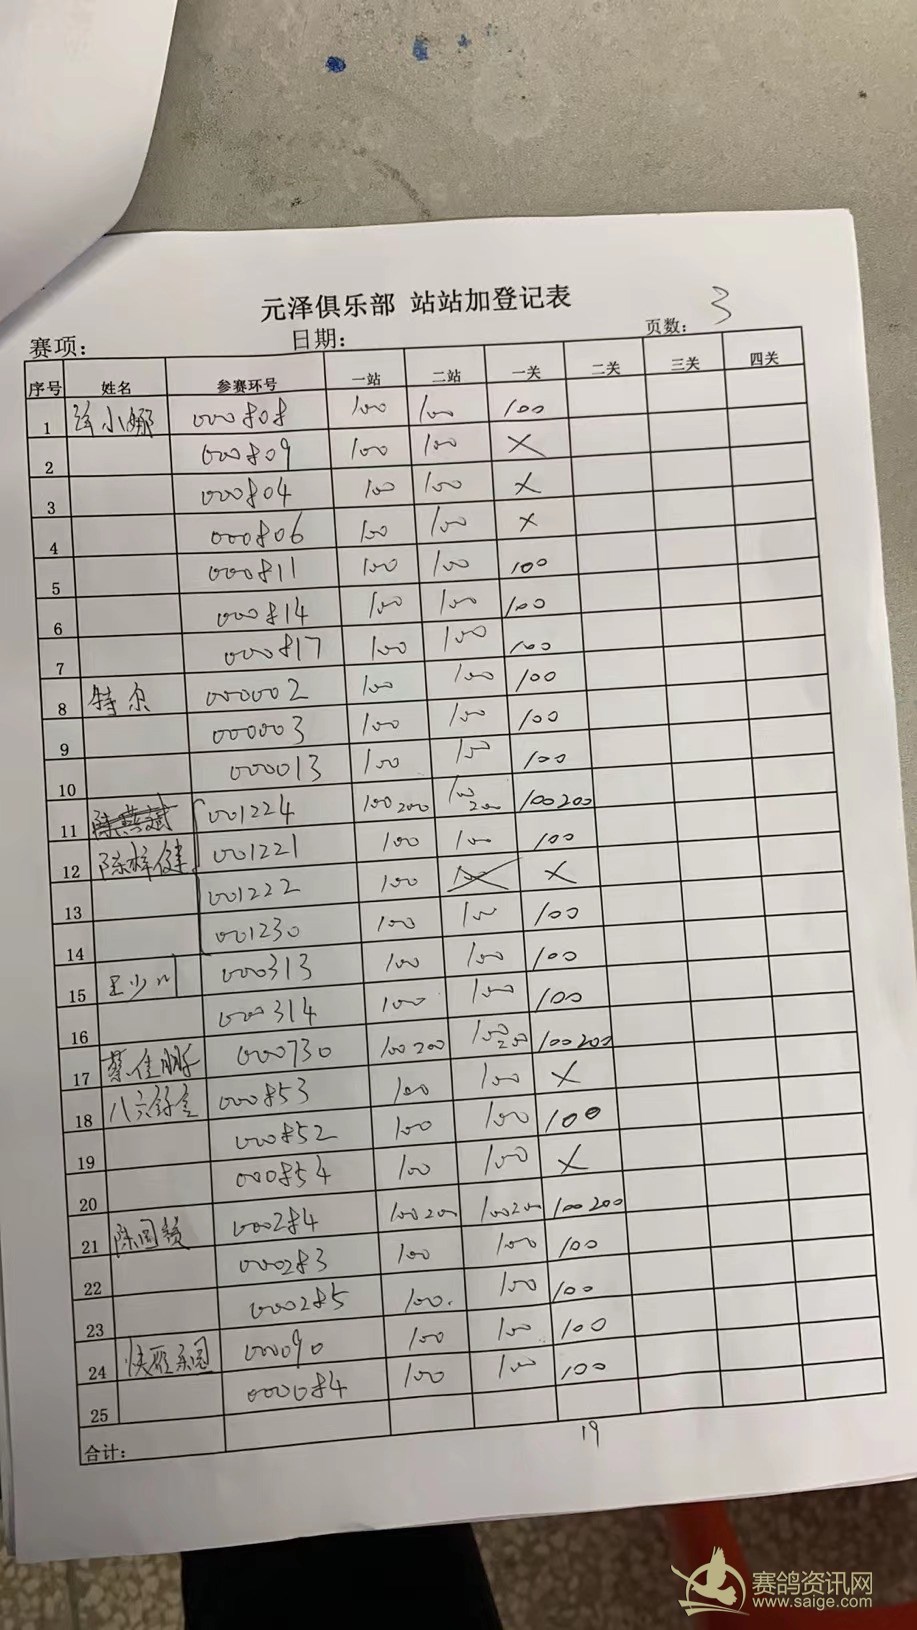 元泽俱乐部 站站加登记表
3
赛项: 日期: 页数:
序号 姓名 参赛环号 一站 二站 一关 二关 三关 四关
1 小娜 000808 100 100 100
2 000809 100 100 X
3 000804 100 100 X
4 000806 100 100 X
5 000811 100 100 100
6 000814 100 100 100
7 000817 100 100 100
8 特尔 000002 100 100 100
9 000003 100 100 100
10 000013 100 100 100
11 001224 100 200 100 200 100 200
12 陈梓健 001221 100 100 100
13 001222 100 100 X
14 001230 100 100 100
15 少川 000313 100 100 100
16 000314 100 100 100
17 蔡佳鹏 000730 100 200 100 200 100 200
18 八六 000853 100 100 X
19 000852 100 100 100
20 000854 100 100 X
21 陈国赞 000284 100 200 100 200 100 200
22 000283 100 100 100
23 000285 100. 100 100
24 00090 100 100 100
25 000084 100 100 100
合计: 19
赛鸽资讯网
www.saige.com